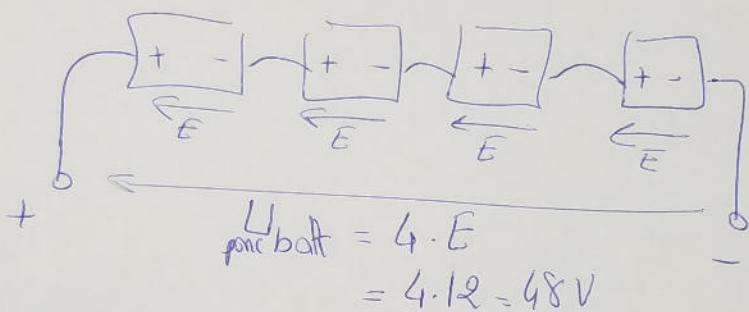 + - + - + - + -
E E E E
+ -
U parc batt = 4 . E
= 4.12 = 48 V